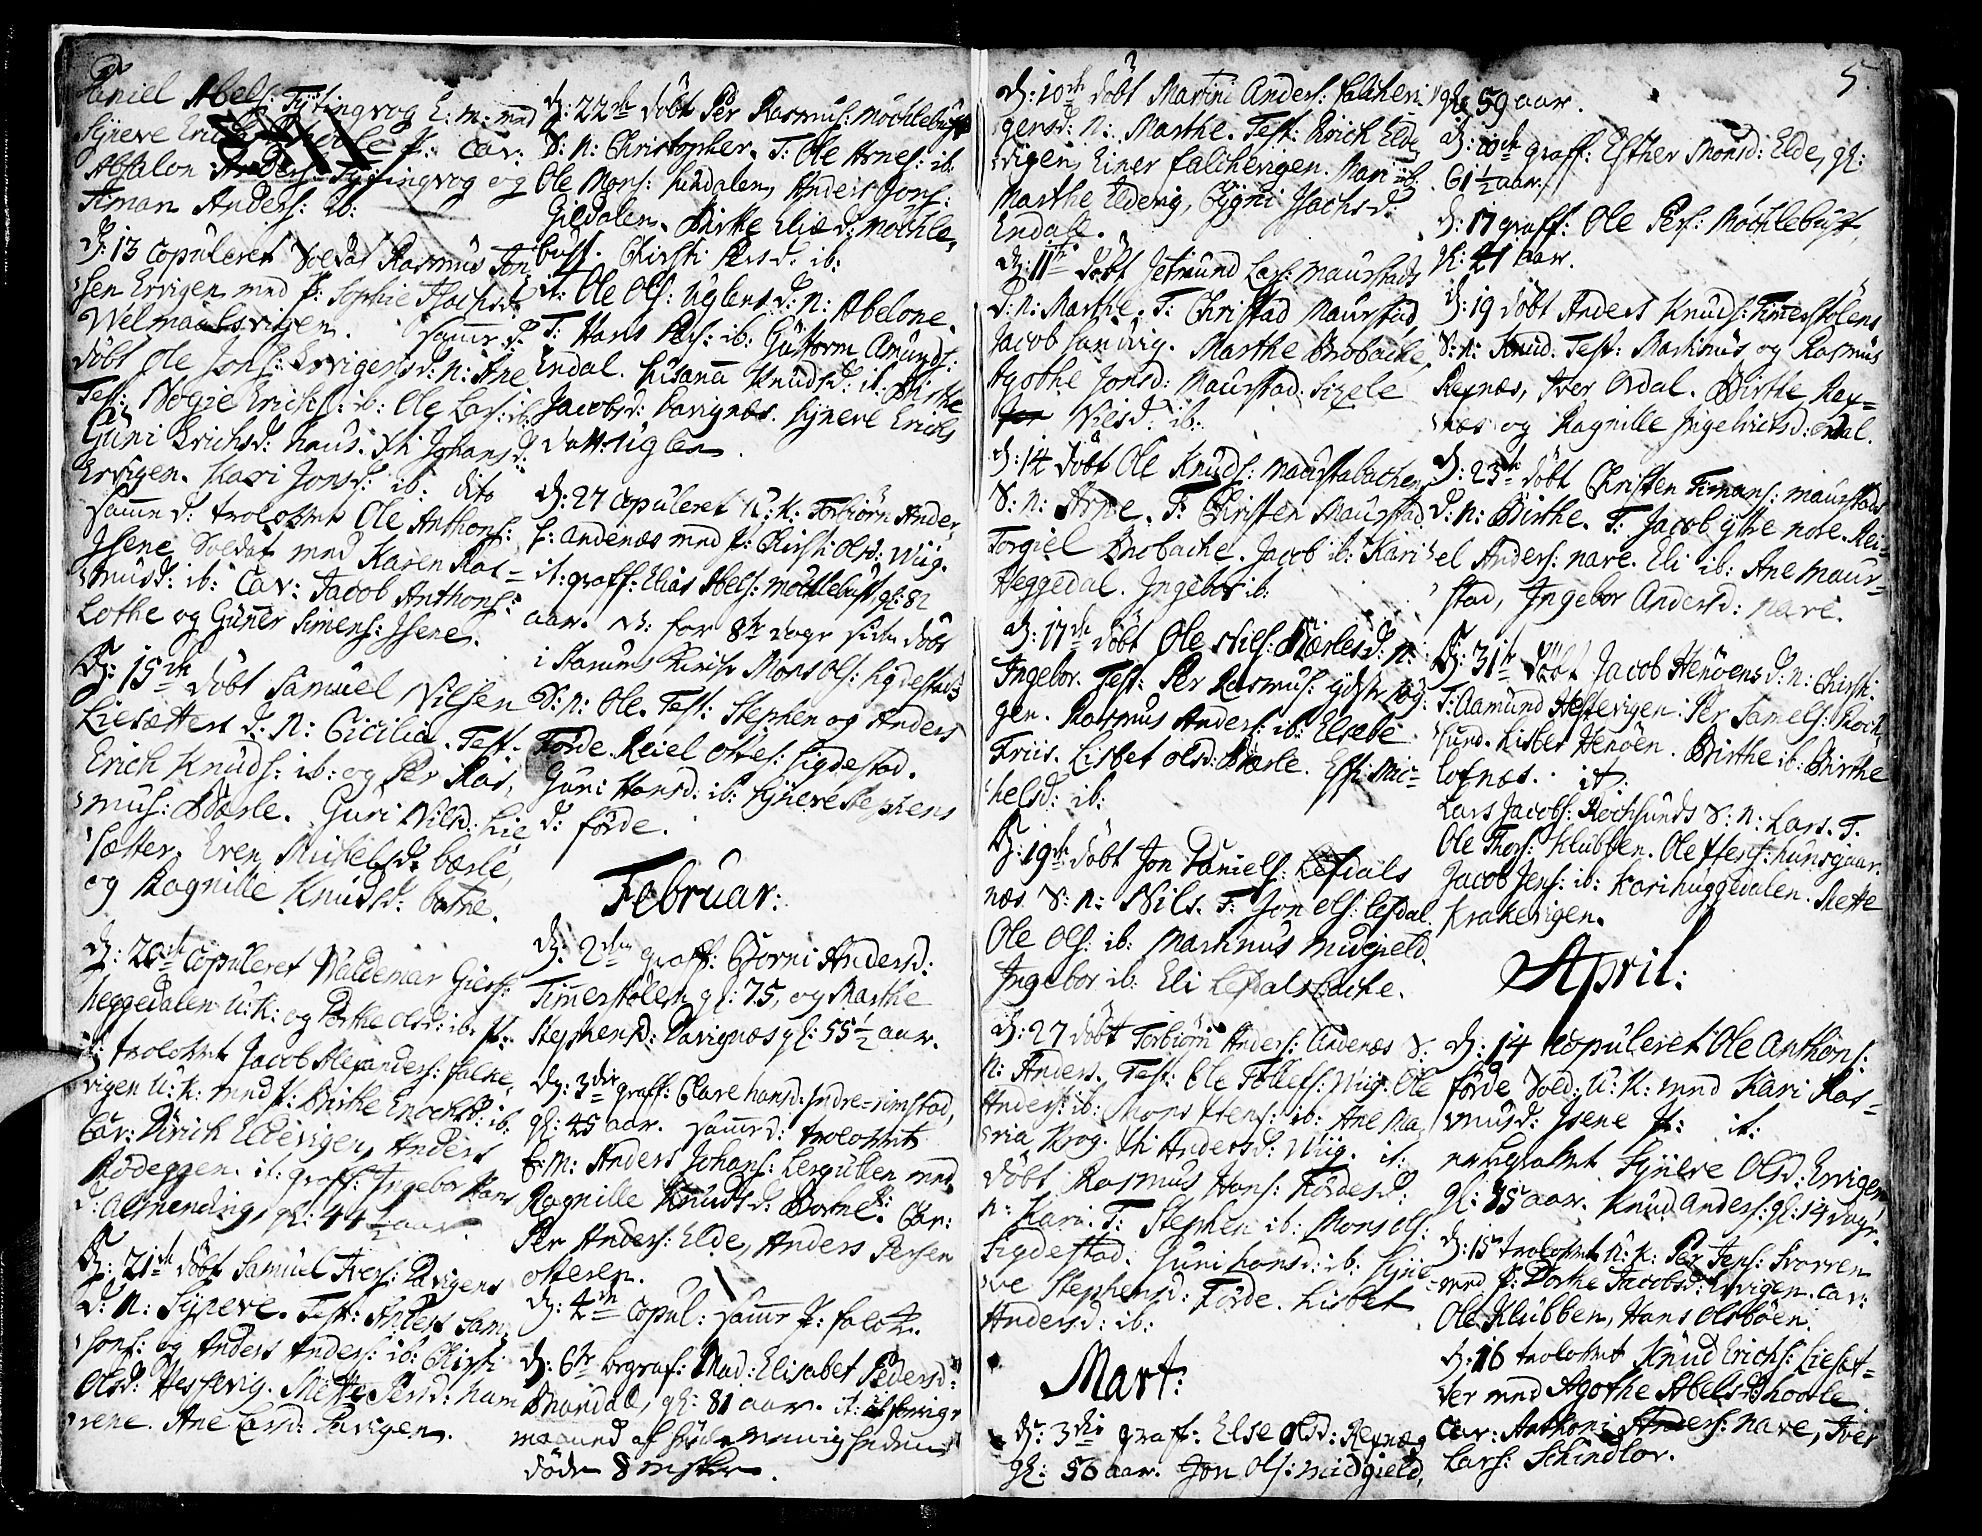 Daniel Abels: Tÿtingvog E: m: med
Sÿneve Erichsd: P: Cav:
Absalon Anders: Tÿtingvog og
Timan Anders: ib:
D: 13 copuleret Soldat Rasmus Jon
sen Ervigen med P: Sophie Isachsd:
Welmaalsvigen. Samme D:
döbt Ole Jons: Ervigens d: n: Ane
Test: Nogie Erichs: ib: Ole Lars: ib:
Guni Erichsd: Naus. Johansd:
Ervigen. Kari Jonsd: ib: dito
Samme d: trolovet Ole Anthons:
Isene Soldat med Karen Ras=
musd: ib: Cav: Jacob Anthons:
Lothe og Guner Simens: Isene.
D: 15de döbt Samuel Nilsen
Liesetters d: n: Cicilia. Test.
Erich Knuds: ib: og Per Ras,
mus: Bærle. Guri Nilsd: Lie
sætter. Eren Michelsd: bærle,
og Ragnille Knudsd: botne.
D: 20de Copuleret Waldemar Giers:
heggedalen U: K: og Dorthe Olsd: ib: P:
it: trolovet Jacob Alexanders: falke,
vigen U: K: med P: Birthe Enochsd: ib:
Cav: Dirich Eldevigen, Anders
Rödeggen. it: graff: Ingebor Hans
d: Almending, gl: 44 1/2 aar.
D: 21de döbt Samuel Ivers: Davigens
d: n: Sÿneve. Test: Anders Sam,
sons: og Anders Anders: ib: Christi
Olsd: Hessevig. Mette Persd: ham
rene. Ane Larsd: Davigen.
D: 22de döbt Per Rasmus: Mochlebust
S: n: Christopher. T: Ole Arnes: ib:
Ole Mons: Lindalen, Anders Jons:
Gildalen. Birthe Eliæd: Mochle,
bust. Christi Persd: ib:
it: Ole Ols: Uglens d: n: Abelone.
T: Hans Pers: ib: Guttorm Amunds:
Endal. Susana Knudsd: ib: Birthe
Jacobsd: Davignæs. Sÿneve Erichs
datt: Uglen.
D: 27 copuleret U: K: Torbiörn Ander,
s: Andenæs med P: Christi Olsd: Wiig.
it: graff: Elias Abels: Mochlebust, gl: 82
aar. N: for 8te dage siden döbt
i Starums Kirke Mons Ols: Sigdestads
S: n: Ole. Test: Stephen og Anders
Förde. Reiel Ottes: Sigdestad.
Guri Hansd: ib: Sÿneve Stephens
d: förde.
Februar:
D: 2den graff: Giörni Andersd:
Timerstölen gl: 75, og Marthe
Stephensd: Davignæs gl: 55 1/2 aar.
D: 3die graff: Clare Hansd: Indre=rimstad,
gl: 45 aar. Samme d: trolovet
E: M: Anders Johans: Lergullen med
Ragnille Knudsd: Botne: Cav:
Per Anders: Elde, Anders Persen
otteren.
D: 4de Copul: samme P: folch.
D: 6te begraf: Mad: Elisabet Pedersd:
Nordal, gl: 81 aar. it: i forrige
maaned af
döde 8 msker.
D: 10de döbt Martini Anders: falcheri
gens d: n: Marthe. Test: Erich Elde,
vigen, Einer falchevigen. Mari ib:
Marthe Eldevig, Gÿgni Isachsd:
Endal.
D: 11te döbt Jetmund Lars: Maurstads
d: n: Marthe. T: Christad Maurstad
Jacob Sandvig. Marthe Brobache,
Agothe Jonsd: Maurstad. Sizele
Nilsd: ib:
D: 14 döbt Ole Knuds: Maurstabachens
S: n: Arne. T: Christen Maurstad.
Torgiel Brobache. Jacob ib: Kari
Heggedal. Ingebor ib:
D: 17de döbt Ole Nils: Bærles d: n:
Ingebor. Test: Per Rasmus:
gen. Rasmus Anders: ib: Elsebe
Friis. Lisbet Olsd: Bærle. Mic=
helsd: ib:
D: 19de döbt Jon Daniels: Lefdals
næs S: n: Nils. T: Jon Ols: Lefdal.
Ole Ols: ib: Martinus Midgield.
Ingebor ib: Eli Lefdalsbache.
D: 27 döbt Torbiörn Anders: Andenæs S:
n: Anders. Test: Ole Tollefs: Wiig. Ole
Anders: ib: Mons Hens: ib: Ane Ma,
ria Krog. Andersd: Wiig. it:
döbt Rasmus Hans: Fördes d:
n: Kari. T: Stephen ib: Mons Ols:
Sigdestad. Guri Hansd: ib: Sÿne
ve Stephensd: Förde. Lisbet
Andersd: ib:
Mart:
D: 3die graff: Else Olsd: Rexnæs
gl: 56 aar. Jon Ols: Midgield,
5.
gl: 59 aar.
D: 10de graff: Esther Monsd: Elde, gl:
61 1/2 aar.
D: 17 graff: Ole Pers: Mochlebust,
gl: 21 aar.
D: 19 döbt Anders Knuds: Timerstölens
S: n: Knud. Test: Martinus og Rasmus
Rexnæs, Iver Ordal. Birthe Rex=
næs og Ragnille Ingebrictsd: Ordal.
D: 25de döbt Christen Timans: Maurstads
d: n: Birthe. T: Jacob ÿttre nore. Rei=
el Anders: nare. Eli ib: Ane Maur=
stad, Ingebor Andersd: nare.
D: 31te döbt Jacob Henöens d: n: Christi.
T: Aamund Hestevigen. Per Samels: Roch,
sund. Lisbet Henöen. Birthe ib: Birthe
lofnæs. it:
Lars Jacobs: Rochsunds S: n: Lars. T.
Ole Thors: Klubben. Ole Hers: hunsgaar.
Jacob Jens: ib: Kari huggedalen. Mette
Krakevigen.
April:
D: 14 Kopuleret Ole Anthons:
förde Sold: U: K: med Kari Ras=
musd: Isene P: it:
Sÿneve Olsd: Ervigen,
gl: 35 aar. Knud Anders: gl: 14 dage.
D: 15 trolovet U: K: Per Jens: Svorren
med P: Dorthe Jacobsd: Ervigen. Cav:
Ole Klubben, Hans Olsböen.
D: 16 trolovet Knud Erichs: Lieset=
ter med Agothe Abelsd: hoole.
Cav: Anthoni Anders: nave, Iver
Lars: Schindlor.